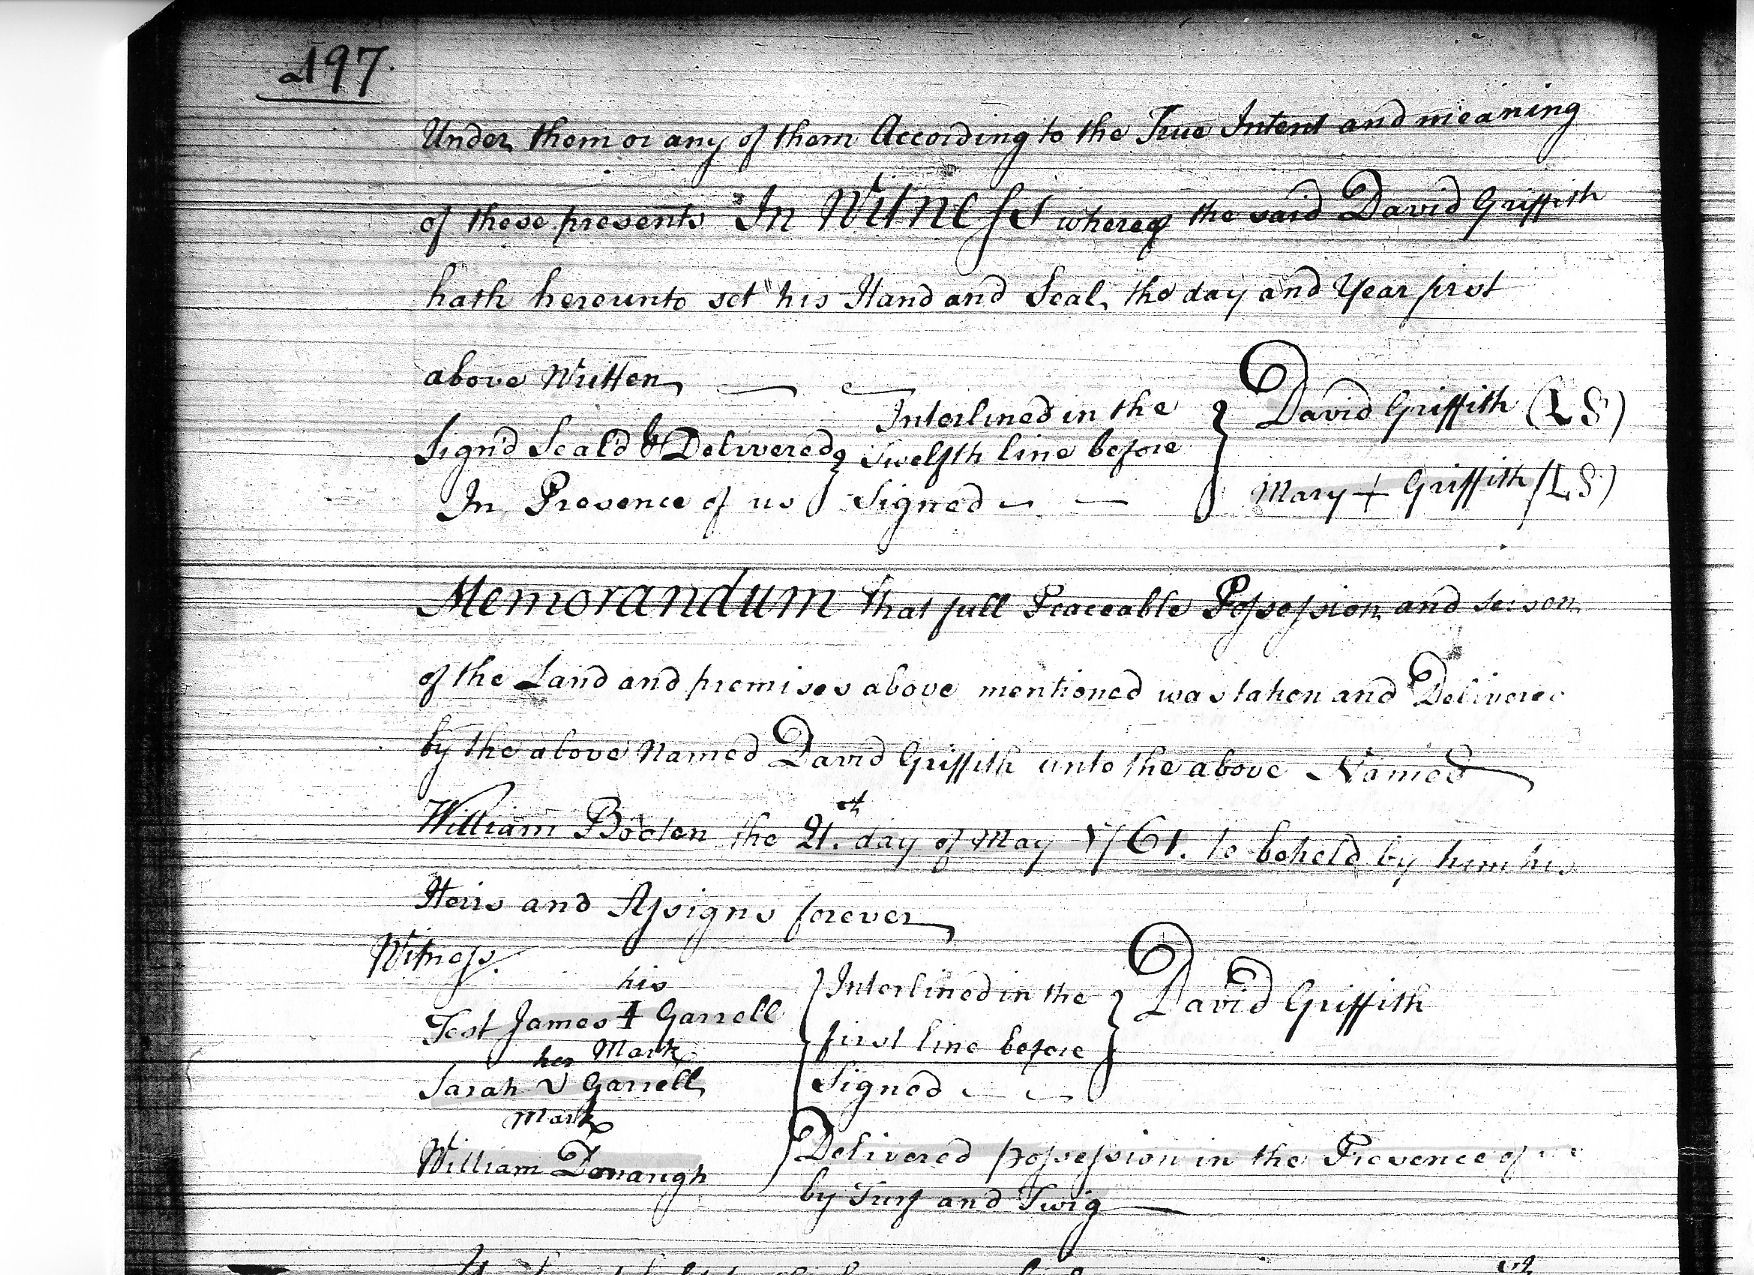 197.
Under them or any of them According to the True Intent and meaning
of these presents In Witness whereof the said David Griffith
hath hereunto set his Hand and Seal the day and Year first
above Written
Sign'd Seal'd & Delivered
In Presence of us
Interlined in the
Twelfth line before
Signed
David Griffith (LS)
Mary + Griffith (LS)
Memorandum that full Peaceable Possession and seison
of the Land and premises above mentioned was taken and Delivered
by the above Named David Griffith unto the above Named
William Booten the 21.th day of May 1761. to beheld by him his
Heirs and Assigns forever
Witness.
his
Test James + Garrell
Mark
her
Sarah V Garrell
Mark
William Donaugh
Interlined in the
first line before
Signed
David Griffith
Delivered possession in the Presence of
by Turf and Twig